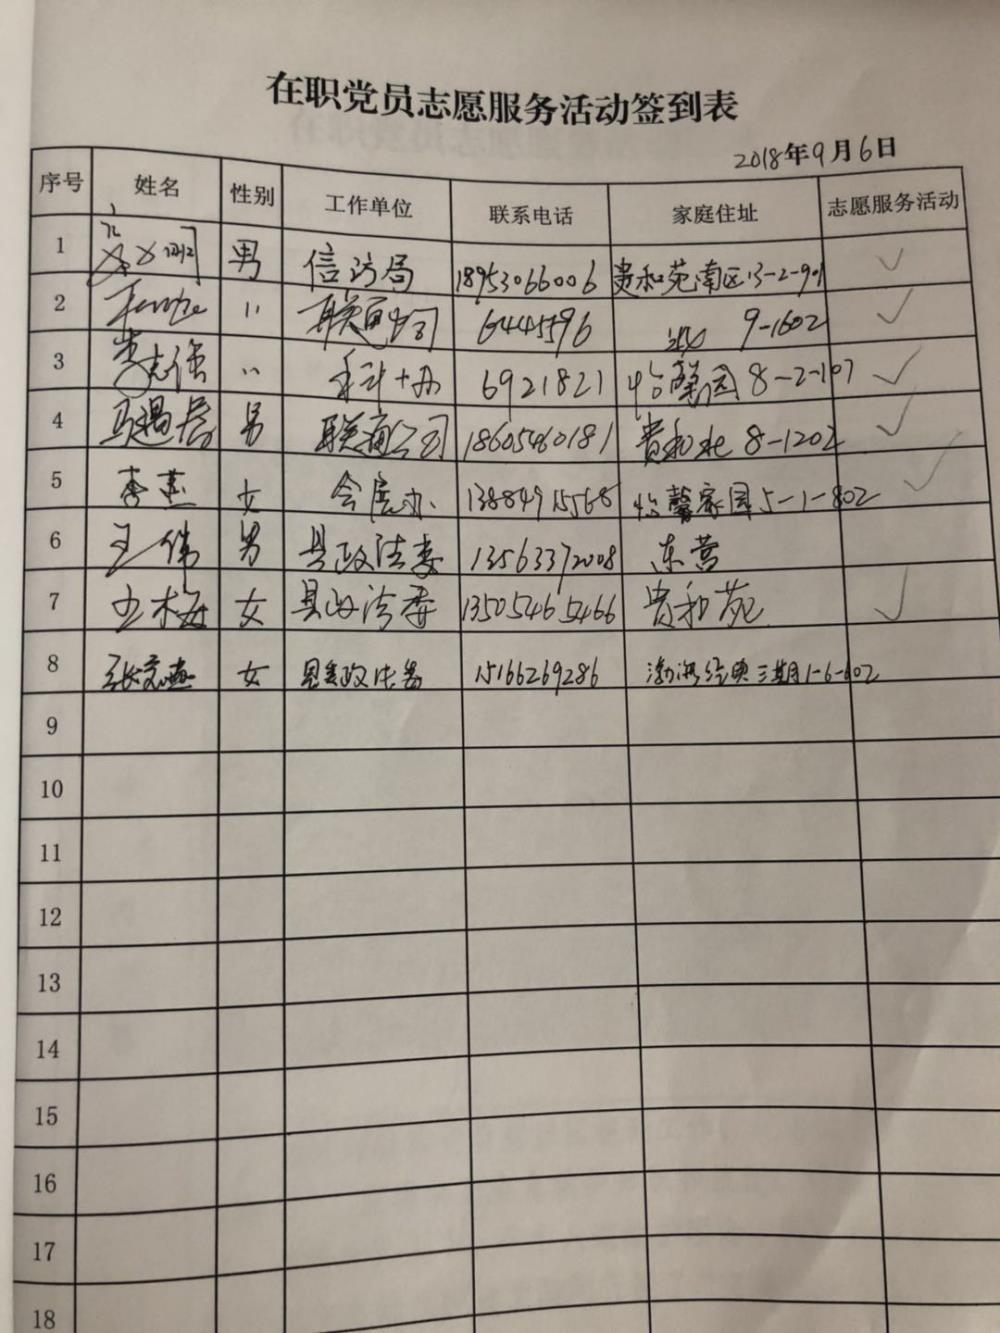 在职党员志愿服务活动签到表
2018年9月6日
序号 姓名 性别 工作单位 联系电话 家庭住址 志愿服务活动
1 男 信访局 18953066006 贵和苑南区13-2-901 ✓
2 〃 联通公司 6445596 9-1602 ✓
3 志强 〃 科协 6921821 怡馨园 8-2-107 ✓
4 男 联通公司 18605460181 贵和北 8-1202 ✓
5 李燕 女 会展办 13884915568 怡馨家园5-1-802 ✓
6 王伟 男 县政法委 13563372008 东营
7 王梅 女 县政法委 13505465466 贵和苑 ✓
8 张 女 县委政法委 15166269286 渤海经典三期1-6-602
9
10
11
12
13
14
15
16
17
18